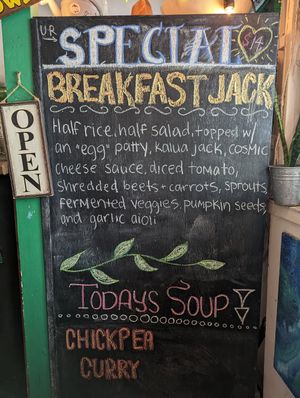 UR
SPECIAL
$14
BREAKFAST JACK
OPEN
Half rice, half salad, topped w/
an "egg" patty, kalua jack, COSMIC
cheese sauce, diced tomato,
shredded beets + carrots, sprouts,
fermented veggies, pumpkin seeds,
and garlic aioli
TODAYS SOUP
CHICKPEA
CURRY